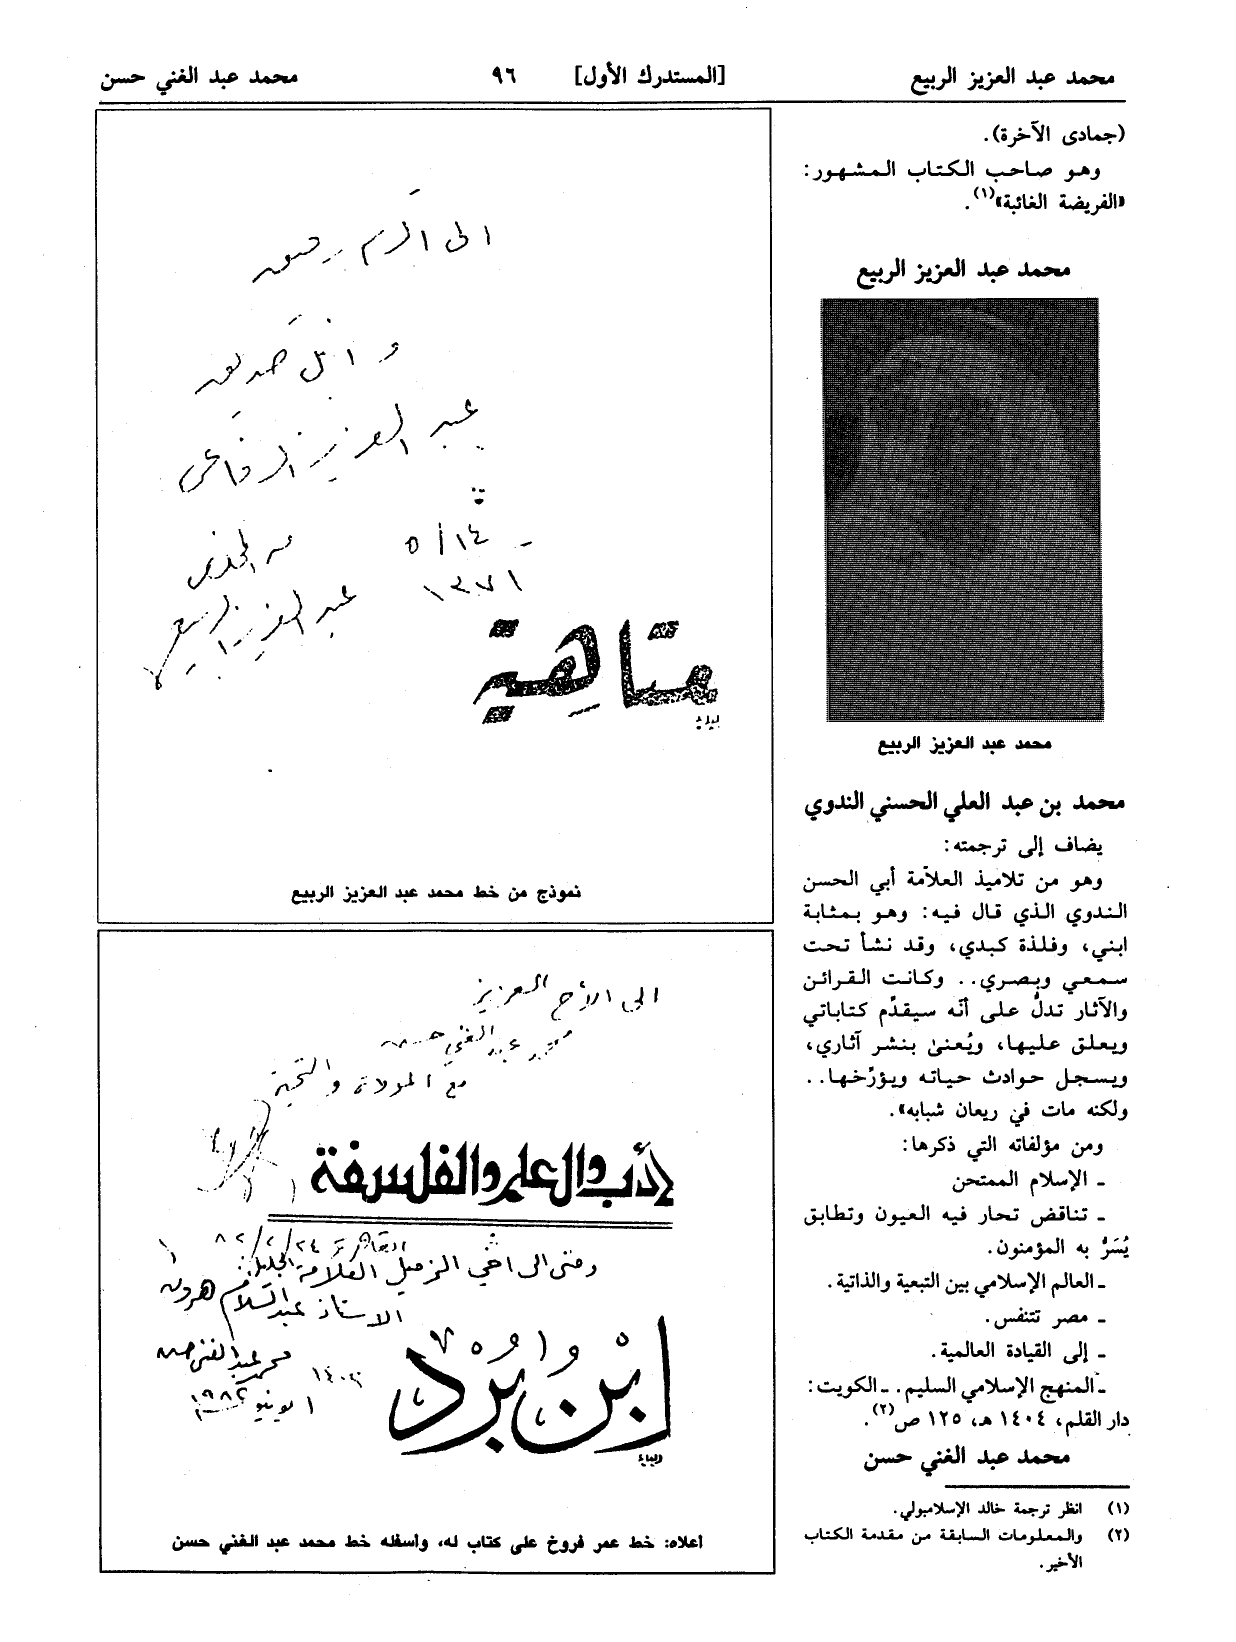 محمد عبد العزيز الربيع [المستدرك الأول] ٩٦ محمد عبد الغني حسن
(جمادى الآخرة).
وهو صاحب الكتاب المشهور:
«الفريضة الغائبة»(١).
محمد عبد العزيز الربيع
محمد عبد العزيز الربيع
محمد بن عبد العلي الحسني الندوي
يضاف إلى ترجمته:
وهو من تلاميذ العلاّمة أبي الحسن
الندوي الذي قال فيه: وهو بمثابة
ابني، وفلذة كبدي، وقد نشأ تحت
سمعي وبصري.. وكانت القرائن
والآثار تدلُّ على أنّه سيقدِّم كتاباتي
ويعلق عليها، ويُعنىٰ بنشر آثاري،
ويسجل حوادث حياته ويؤرِّخها..
ولكنه مات في ريعان شبابه».
ومن مؤلفاته التي ذكرها:
ـ الإسلام الممتحن
ـ تناقض تحار فيه العيون وتطابق
يُسَرُّ به المؤمنون.
ـ العالم الإسلامي بين التبعية والذاتية.
ـ مصر تتنفس.
ـ إلى القيادة العالمية.
ـ المنهج الإسلامي السليم. ـ الكويت:
دار القلم، ١٤٠٤ هـ، ١٢٥ ص(٢).
محمد عبد الغني حسن
(١) انظر ترجمة خالد الإسلامبولي.
(٢) والمعلومات السابقة من مقدمة الكتاب
الأخير.
الى اكرم رفيق
و انبل صديق
عبد العزيز الرفاعي
٥/١٤
١٣٧١
من المخلص
عبد العزيز الربيع
متاهية
نموذج من خط محمد عبد العزيز الربيع
الى الأخ العزيز
محمد عبد الغني حسن
مع المودة والتحية
الأدب والعلم والفلسفة
القاهرة ٨٢/٢/٢٤
وفتى الى اخي الزميل العلامة الجليل
الاستاذ عبد السلام هرون
محمد عبد الغني حسن
١٤٠٢
١ يونيو ١٩٨٢
ابن بُرد
أعلاه: خط عمر فروخ على كتاب له، وأسفله خط محمد عبد الغني حسن